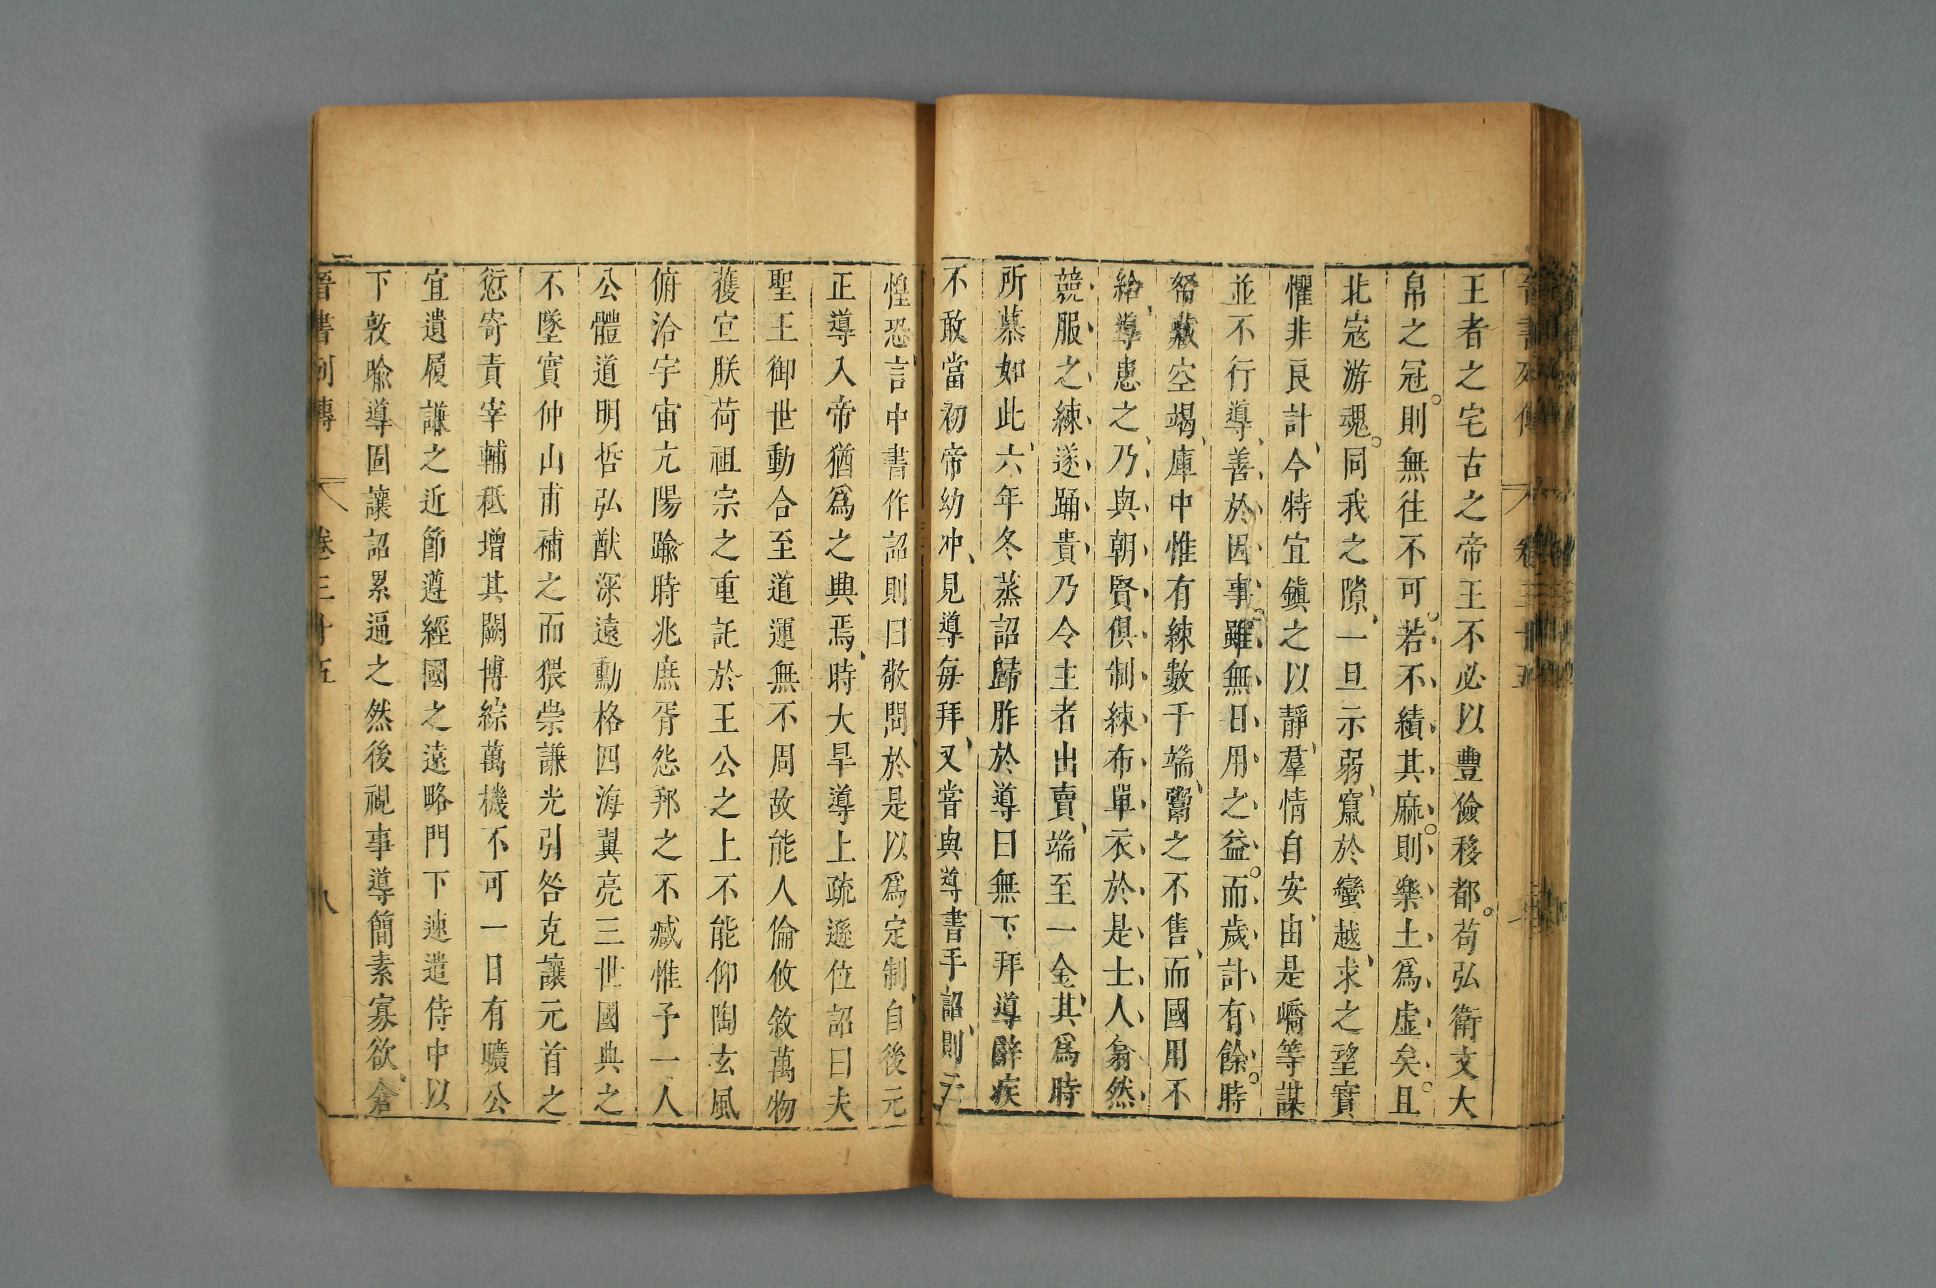 王者之宅古之帝王不必以豐儉移都苟弘衛文大
帛之冠則無往不可若不績其麻則樂土爲虛矣且
北寇游魂伺我之隙一旦示弱竄於蠻越求之望實
懼非良計今特宜鎭之以靜羣情自安由是嶠等謀
並不行導善於因事雖無日用之益而歲計有餘時
帑藏空竭庫中惟有練數千端鬻之不售而國用不
給導患之乃與朝賢俱制練布單衣於是士人翕然
競服之練遂踊貴乃令主者出賣端至一金其爲時
所慕如此六年冬蒸詔歸胙於導曰無下拜導辭疾
不敢當初帝幼冲見導每拜又嘗與導書手詔則云
惶恐言中書作詔則曰敬問於是以爲定制自後元
正導入帝猶爲之興焉時大旱導上疏遜位詔曰夫
聖王御世動合至道運無不周故能人倫攸敘萬物
獲宜朕荷祖宗之重託於王公之上不能仰陶玄風
俯洽宇宙亢陽踰時兆庶胥怨邦之不臧惟予一人
公體道明哲弘猷深遠勳格四海翼亮三世國典之
不墜實仲山甫補之而猥崇謙光引咎克讓元首之
愆寄責宰輔秪增其闕博綜萬機不可一日有曠公
宜遺履謙之近節遵經國之遠略門下速遣侍中以
下敦喩導固讓詔累逼之然後視事導簡素寡欲倉
晉書列傳 卷三十五 八